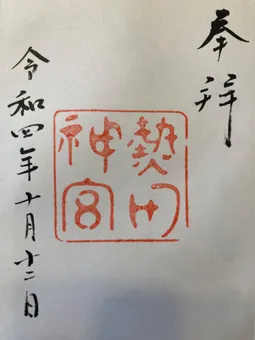 奉拝
熱田
神宮
令和四年十月十二日